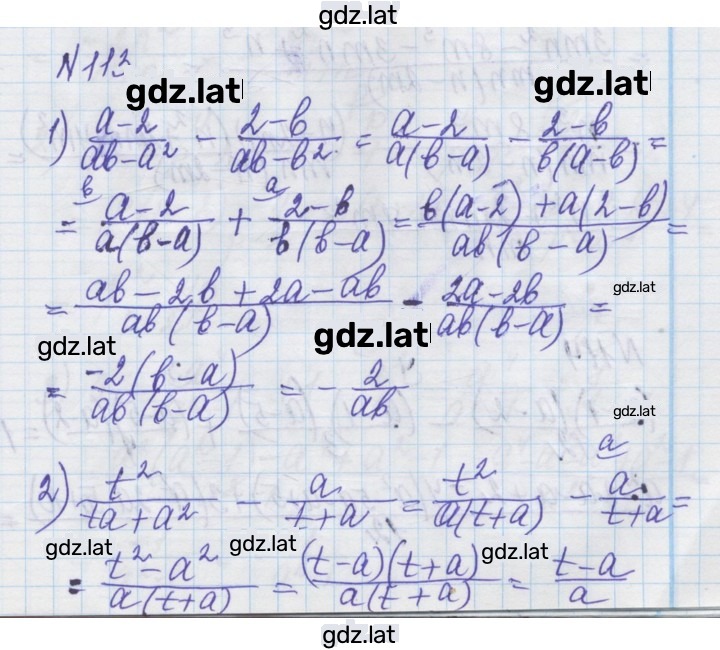 gdz.lat
N 113
gdz.lat gdz.lat
1) a-2/ab-a² - 2-b/ab-b² = a-2/a(b-a) - 2-b/b(a-b) =
= b a-2/a(b-a) + a 2-b/b(b-a) = b(a-2)+a(2-b)/ab(b-a) =
= ab-2b+2a-ab/ab(b-a) = 2a-2b/ab(b-a) =
gdz.lat
gdz.lat gdz.lat
= -2(b-a)/ab(b-a) = - 2/ab
gdz.lat
2) t²/ta+a² - a/t+a = t²/a(t+a) - a a/t+a =
gdz.lat gdz.lat gdz.lat
= t²-a²/a(t+a) = (t-a)(t+a)/a(t+a) = t-a/a
gdz.lat